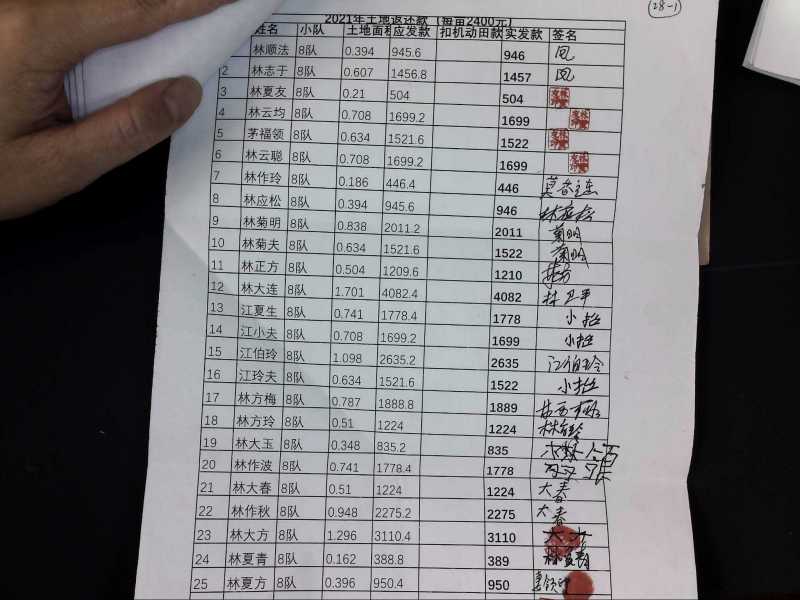 (28-1)
2021年土地返还款（每亩2400元）
姓名 小队 土地面积 应发款 扣机动田款 实发款 签名
林顺法 8队 0.394 945.6 946 凤
2 林志于 8队 0.607 1456.8 1457 凤
3 林夏友 8队 0.21 504 504
4 林云均 8队 0.708 1699.2 1699
5 茅福领 8队 0.634 1521.6 1522
6 林云聪 8队 0.708 1699.2 1699
7 林作玲 8队 0.186 446.4 446
8 林应松 8队 0.394 945.6 946 林应松
9 林菊明 8队 0.838 2011.2 2011 菊明
10 林菊夫 8队 0.634 1521.6 1522 菊明
11 林正方 8队 0.504 1209.6 1210
12 林大连 8队 1.701 4082.4 4082 林卫平
13 江夏生 8队 0.741 1778.4 1778
14 江小夫 8队 0.708 1699.2 1699
15 江伯玲 8队 1.098 2635.2 2635 江伯玲
16 江玲夫 8队 0.634 1521.6 1522
17 林方梅 8队 0.787 1888.8 1889
18 林方玲 8队 0.51 1224 1224 林方玲
19 林大玉 8队 0.348 835.2 835
20 林作波 8队 0.741 1778.4 1778
21 林大春 8队 0.51 1224 1224 大春
22 林作秋 8队 0.948 2275.2 2275 大春
23 林大方 8队 1.296 3110.4 3110 大方
24 林夏青 8队 0.162 388.8 389 林夏青
25 林夏方 8队 0.396 950.4 950